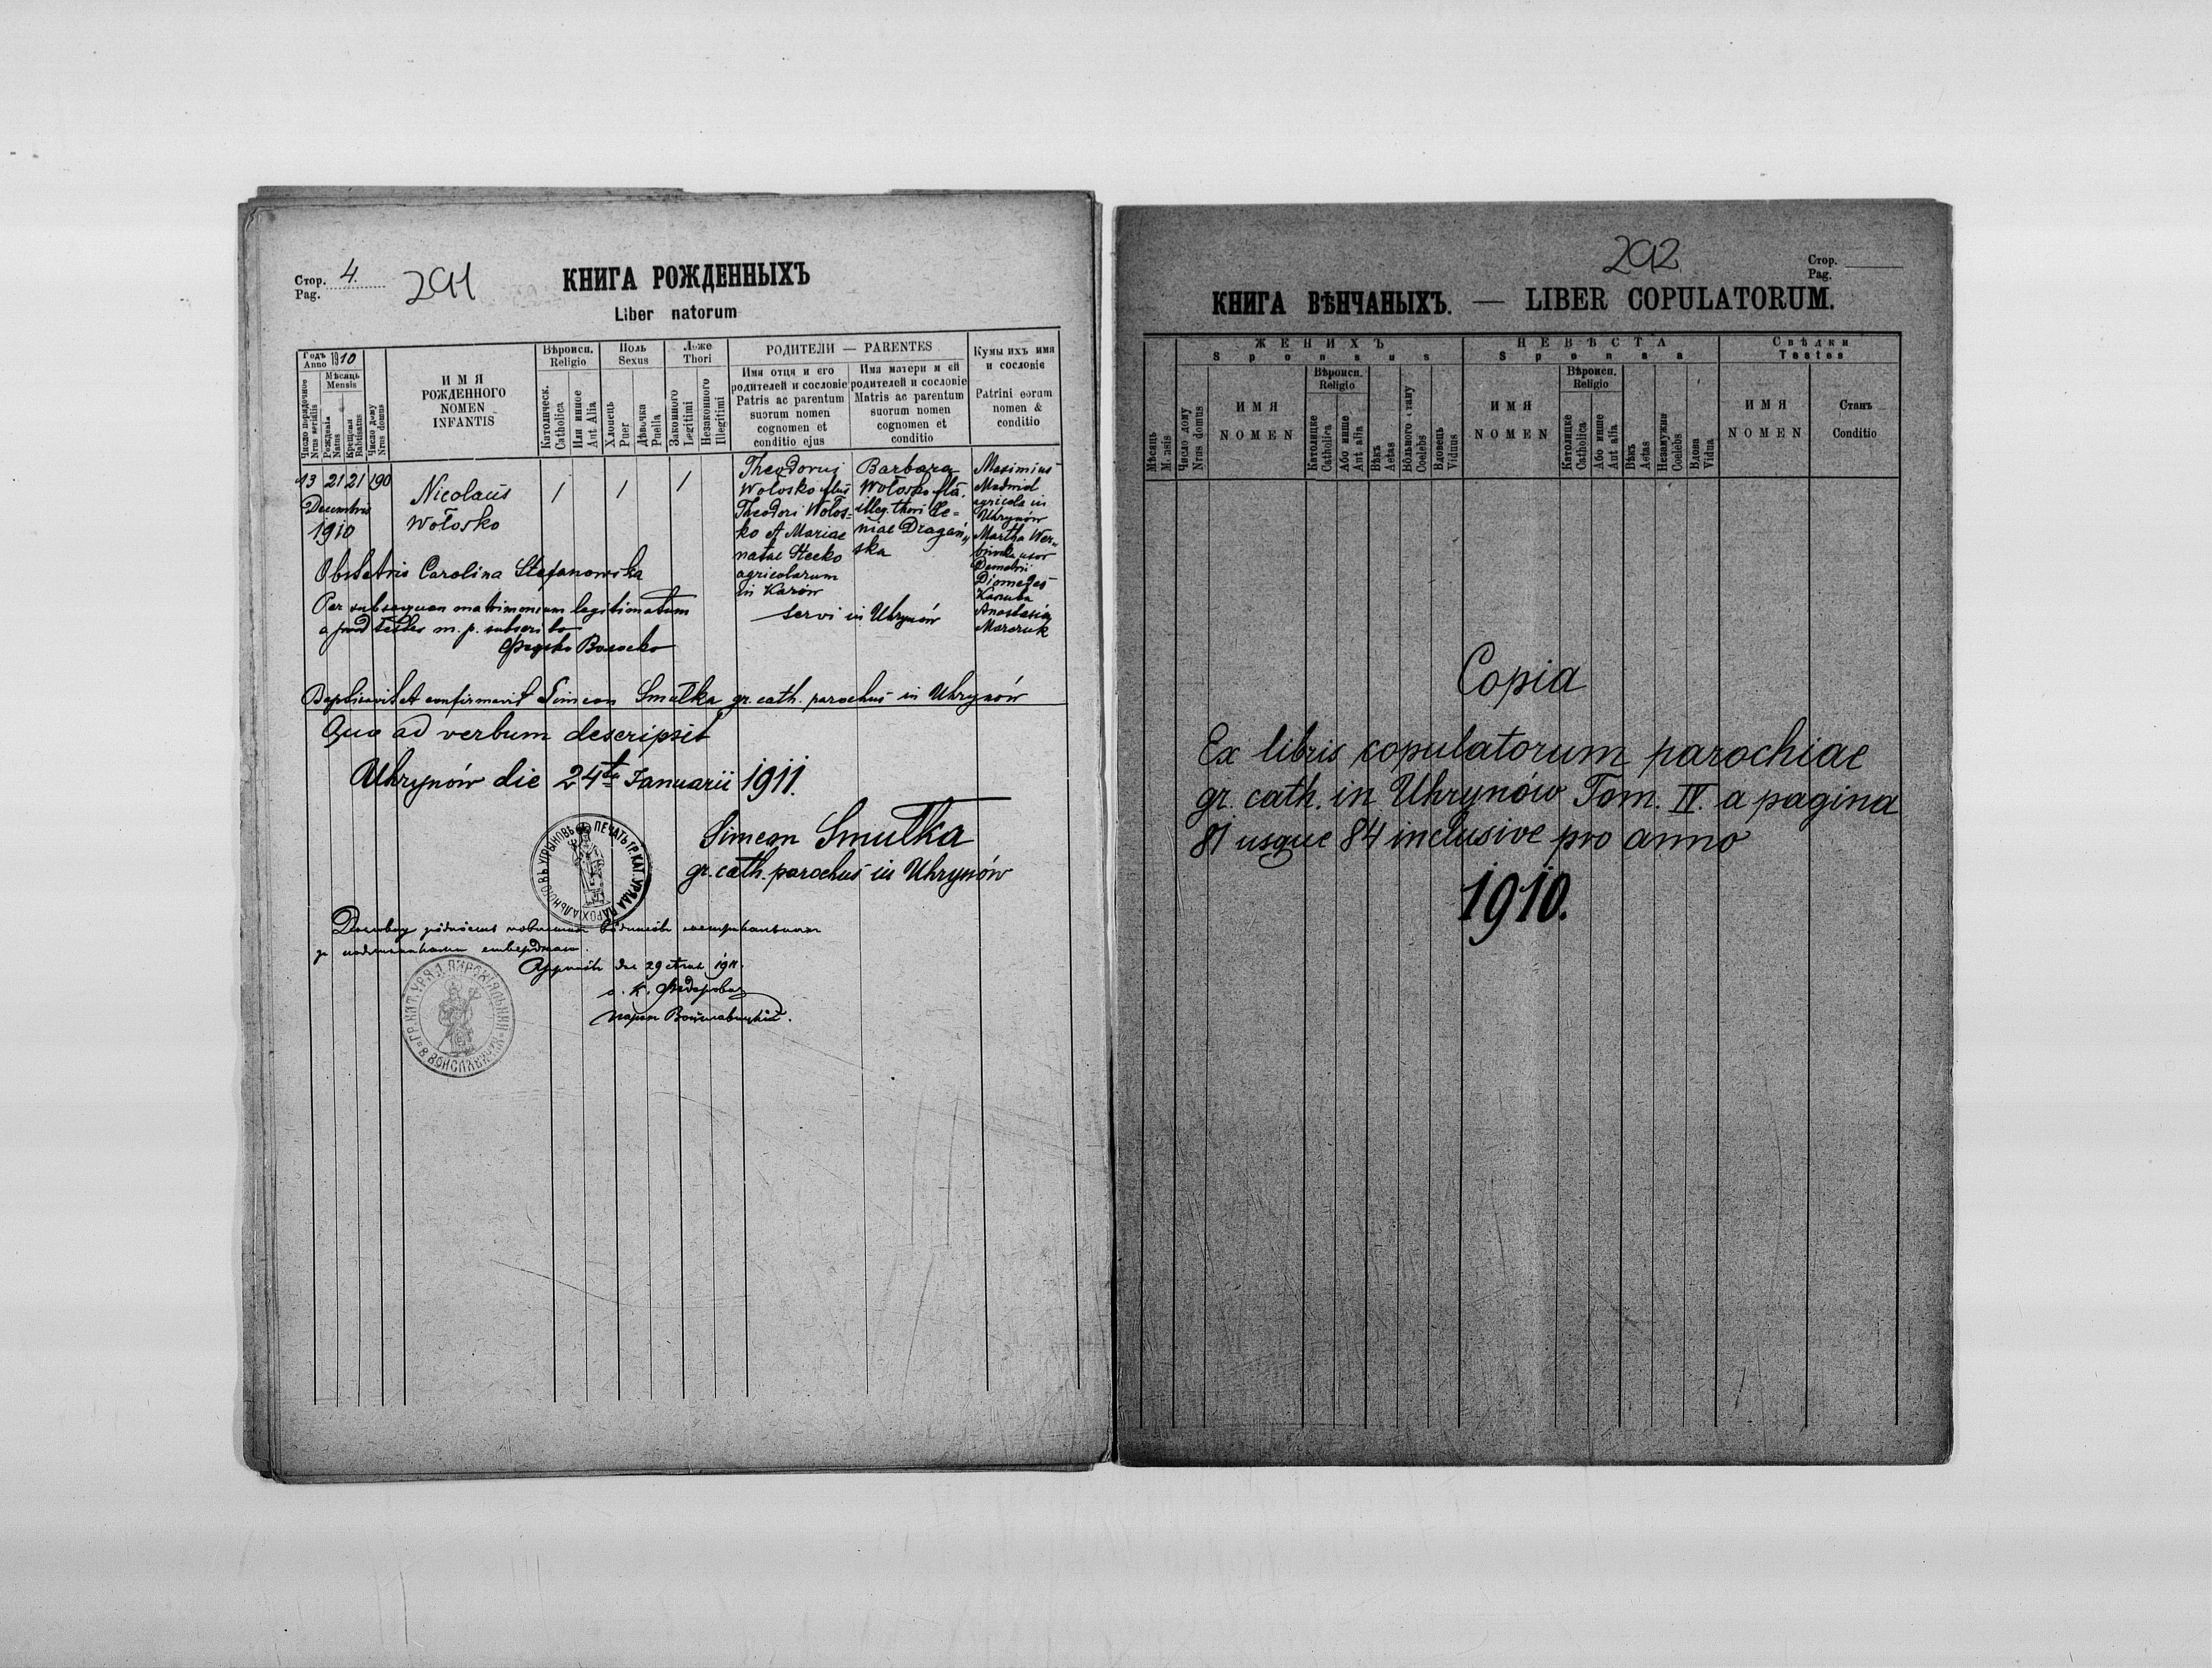 Стор. 4.
Pag.
291
КНИГА РОЖДЕННЫХЪ
Liber natorum
Годъ 1910
Anno
Мѣсяць
Mensis
Число порядочное
Nrus serialis
Рожденія
Natus
Крещенія
Babtisatus
Число дому
Nrus domus
ИМЯ
РОЖДЕННОГО
NOMEN
INFANTIS
Вѣроисп.
Religio
Католическ.
Catholica
Или инное
Aut Alia
Поль
Sexus
Хлопець
Puer
Дѣвочка
Puella
Ложе
Thori
Законного
Legitimi
Незаконного
Illegitimi
РОДИТЕЛИ — PARENTES
Имя отця и его
родителей и сословіе
Patris ac parentum
suorum nomen
cognomen et
conditio ejus
Има матери и ей
родителей и сословіе
Matris ac parentum
suorum nomen
cognomen et
conditio
Кумы ихъ имя
и сословіе
Patrini eorum
nomen &
conditio
13 21 21 190
Decembris
1910
Nicolaus
Wołosko
/ / /
Theodorus
Wołosko filius
Theodori Wołos=
ko et Mariae
natae Stecko
agricolarum
in Karów
Barbara
Wołosko fila.
illeg. thori Ле=
niae Dragań„
ska
servi in Uhrynów
Maximius
Madrid
agricola in
Uhrynów
Martha Wer„
uxor
Demetrii
Diomedes
Kaniuba
Anastasia
Marczuk
Obstetris Carolina Stefanowska
Per subsequen matrimonium legitimatum
testes m. p. subscribo
Федько Волосько
Baptisavit et confirmavit Simeon Smulka gr. cath. parochus in Uhrynów
Quo ad verbum descripsit
Uhrynów die 24ta Januarii 1911.
Simeon Smulka
gr. cath. parochus in Uhrynów
ПЕЧАТЬ ГР. КАТ. УРЯДА ПАРОХІАЛЬНОГО ВЪ УГРЫНОВѢ
29 1911.
о. К. Федорович
парох Войславицкій.
292
Стор.
Pag.
КНИГА ВѢНЧАНЫХЪ. — LIBER COPULATORUM.
Мѣсяць
Mensis
Число дому
Nrus domus
ЖЕНИХЪ
Sponsus
ИМЯ
NOMEN
Вѣроисп.
Religio
Католицке
Catholica
Або инше
Aut alia
Вѣкъ
Aetas
Вôльного стану
Coelebs
Вдовець
Viduus
НЕВѢСТА
Sponsa
ИМЯ
NOMEN
Вѣроисп.
Religio
Католицке
Catholica
Або инше
Aut alia
Вѣкъ
Aetas
Незамужна
Coelebs
Вдова
Vidua
Свѣдки
Testes
ИМЯ
NOMEN
Станъ
Conditio
Copia
Ex libris copulatorum parochiae
gr. cath. in Uhrynów Tom. IV. a pagina
81 usque 84 inclusive pro anno
1910.